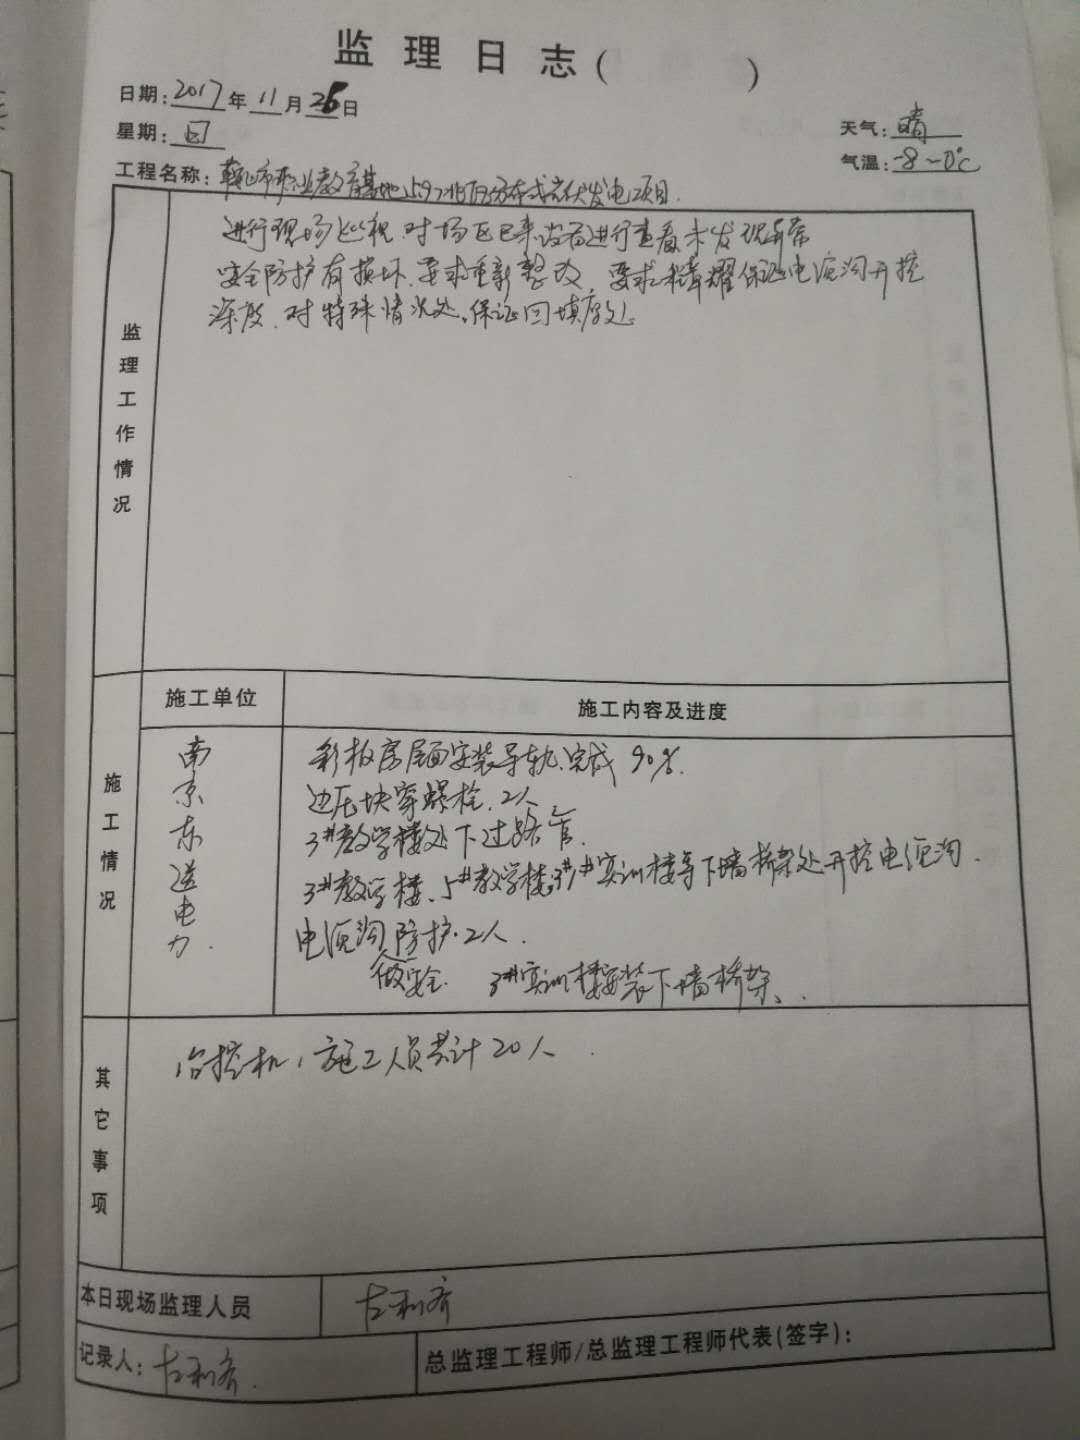 监理日志( )
日期:2017年11月26日
星期:日
天气:晴
气温:-8~0℃
工程名称:鞍山市职业教育基地5.9721MW分布式光伏发电项目.
监理工作情况
进行现场巡视.对场区已来设备进行查看未发现异常
安全防护有损坏.要求重新整改,要求 保证电缆沟开挖
深度.对特殊情况处,保证回填
施工情况
施工单位
施工内容及进度
南京东送电力.
彩板房屋面安装导轨.完成90%.
边压块穿螺栓.2人
3#教学楼处下过路管.
3#教学楼、5#教学楼、3#1#实训楼等下墙桥架处开挖电缆沟.
电缆沟防护.2人.
做安全.
3#实训楼安装下墙桥架、.
其它事项
1台挖机,施工人员共计20人.
本日现场监理人员
左利齐
记录人:左利齐.
总监理工程师/总监理工程师代表(签字):